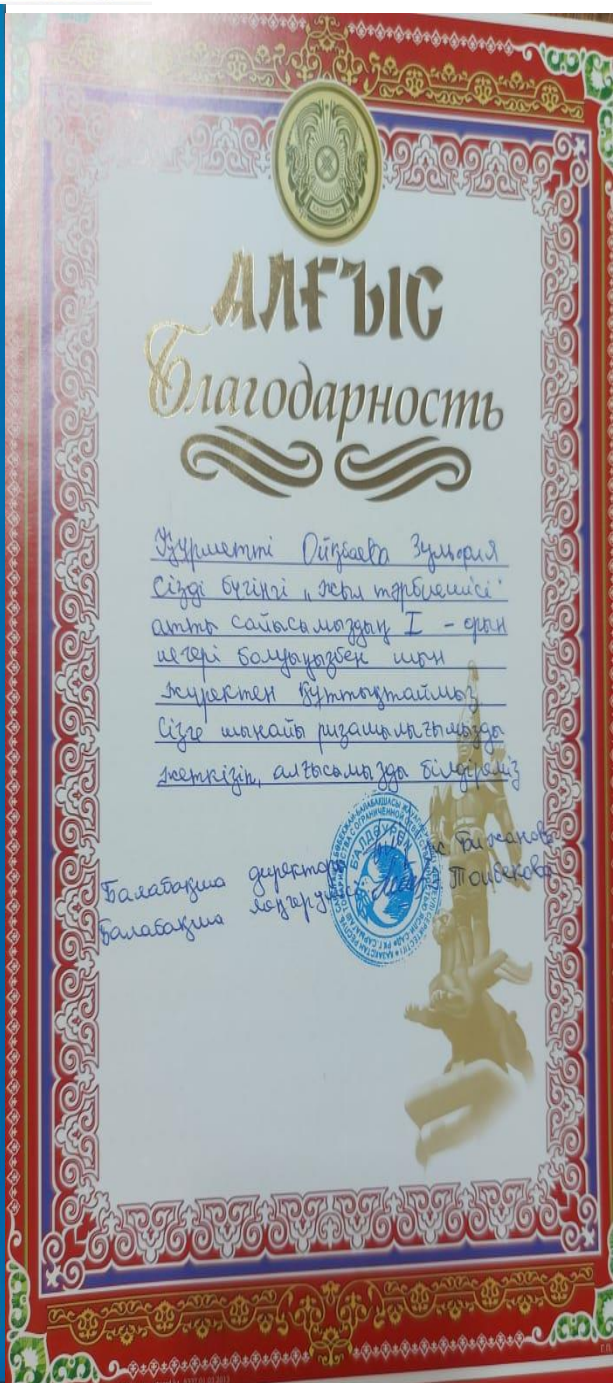 АЛҒЫС
Благодарность
Құрметті Ойңбаева Зульфия
Сізді бүгінгі „Жыл тәрбиешісі"
атты сайысымыздың I - орын
иегері болуыңызбен шын
жүректен құттықтаймыз
Сізге шынайы ризашылығымызды
жеткізіп, алғысымызды білдіреміз
Балабақша директоры Бижанова
Балабақша меңгерушісі Тойбекова
БАЛДӘУРЕН